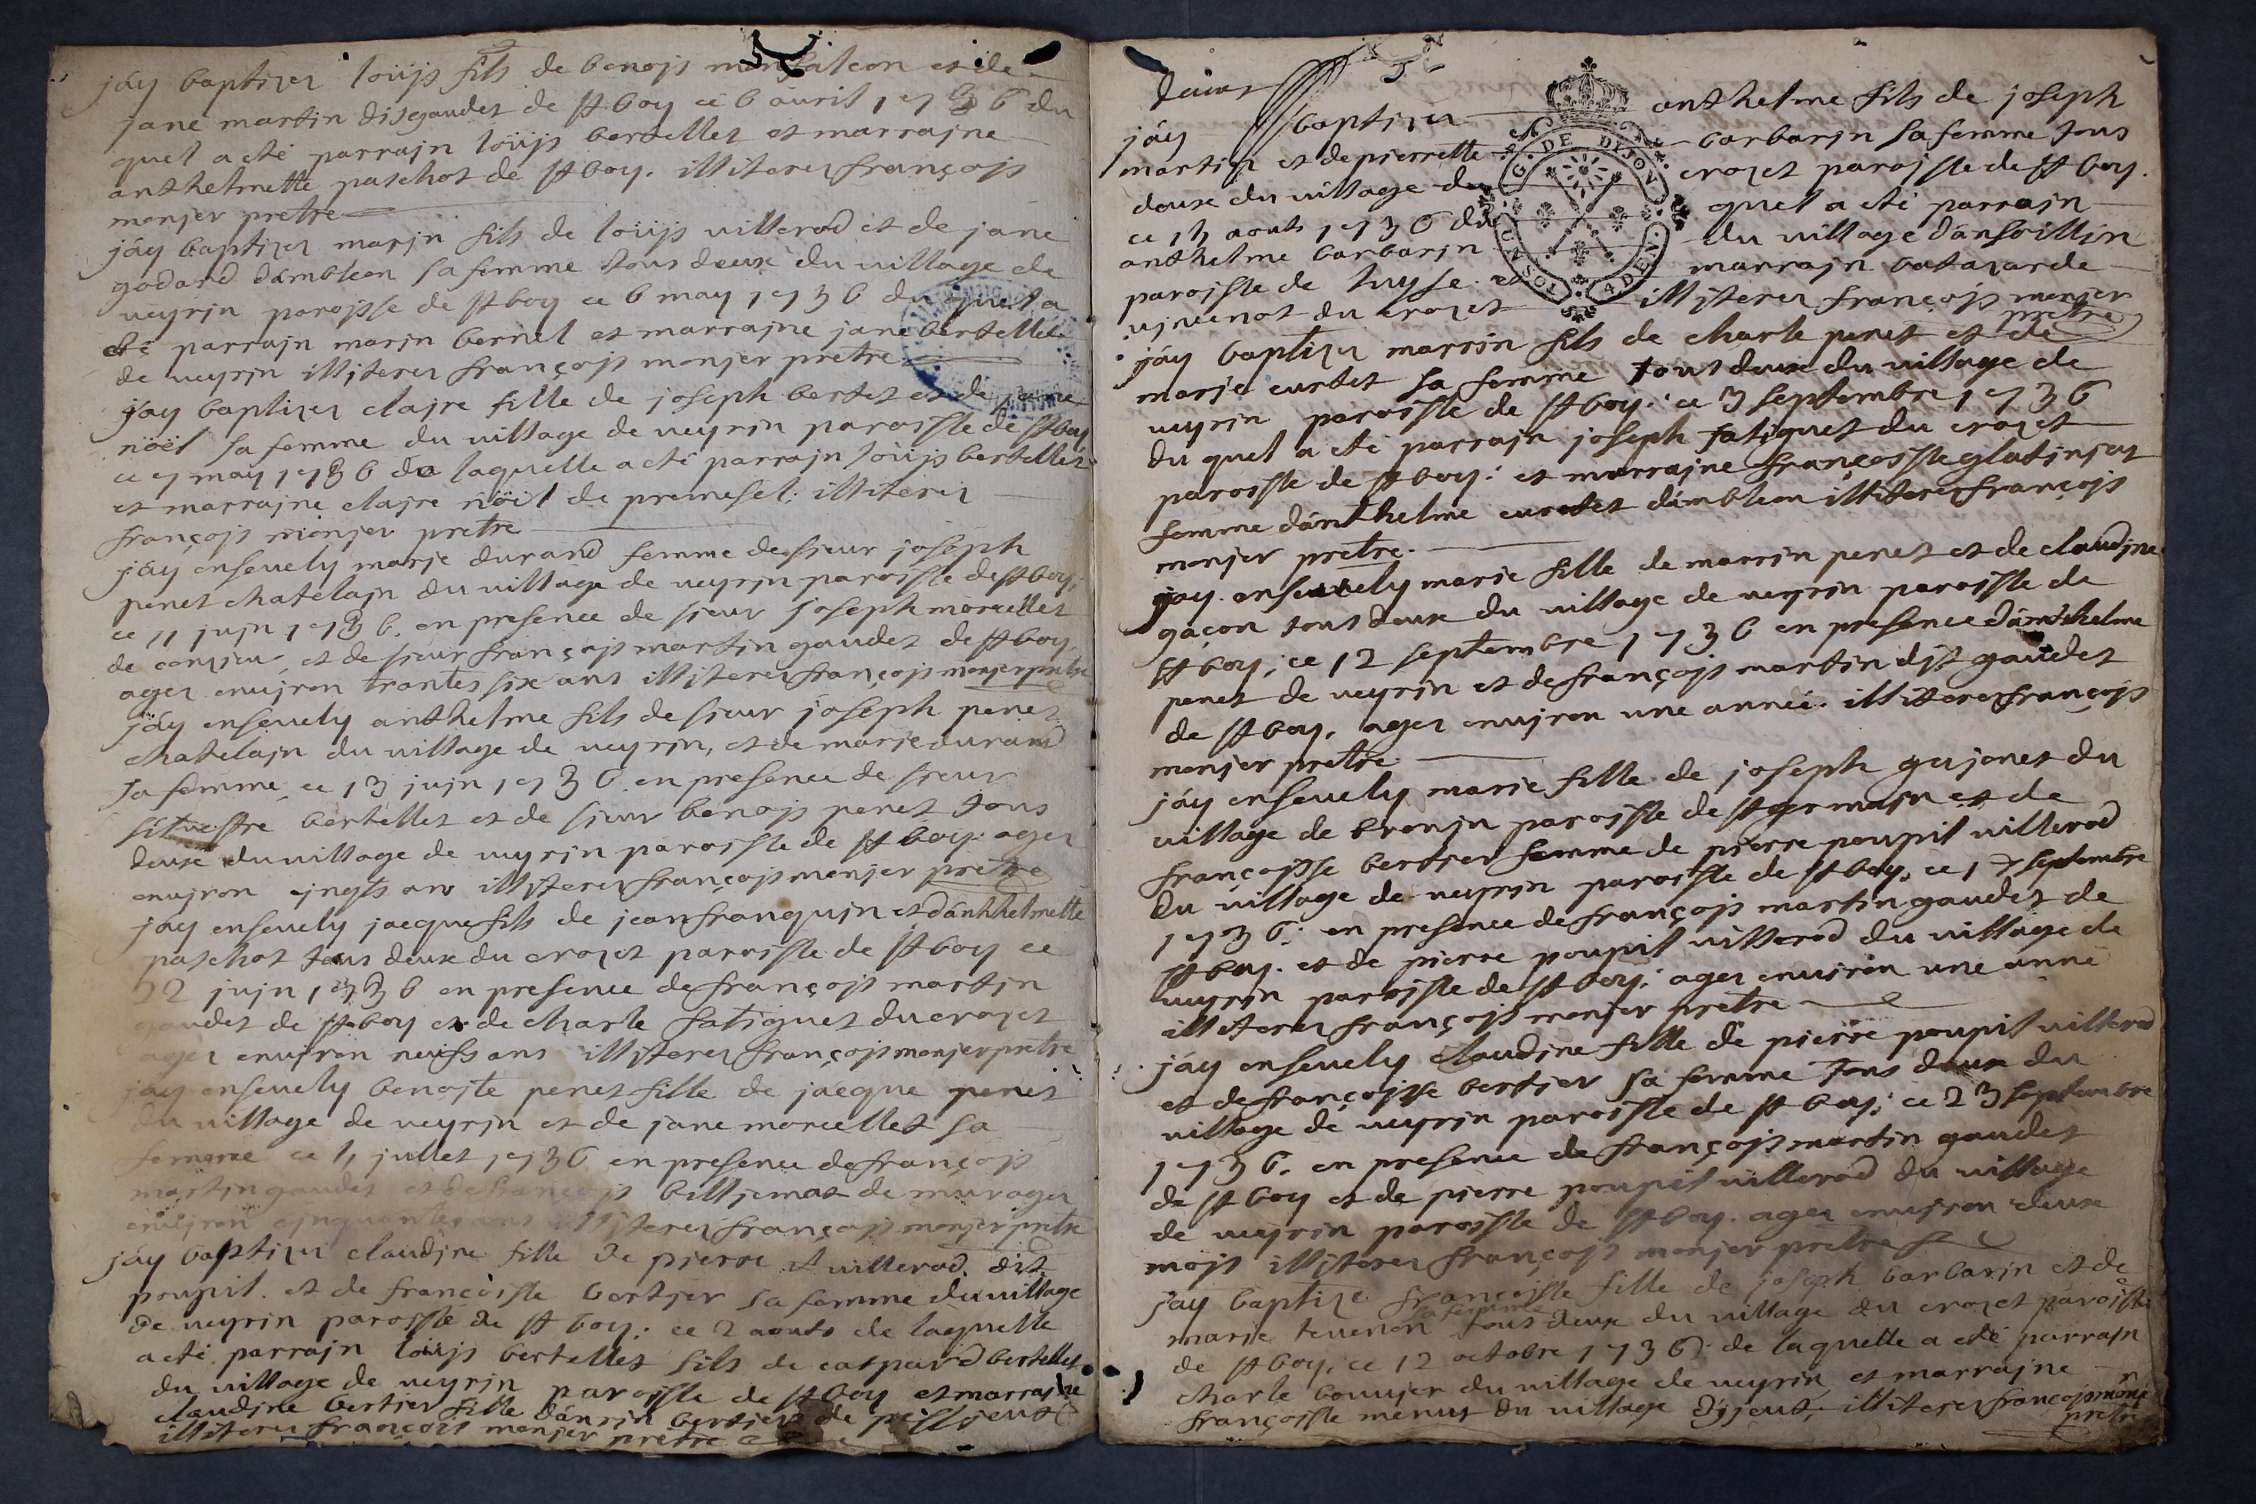 jáy baptizer loüjs fils de benojs monfalcon et de
jane martin dit gaudet de st boy ce 6 auril 1736 du
quel a eté parrajn loüjs bertellet et marrajne
anthelmette paschot de st boy. illiterez françojs
monjer pretre
jáy baptizer marjn fils de loüjs villerod et de jáne
godard dámbleon sa femme tous deux du village de
veyrjn parojsse de st boy ce 6 may 1736 du quel a
eté parrajn marjn bernel et marrajne jane bertellet
de veyrjn illjterez françojs monjer pretre
jáy baptizer clajre fille de joseph bertet et de jeanne
nöel sa femme du village de veyrjn paroisse de st boy
ce 7 may 1736 de laquelle a eté parrajn loüjs bertellet
et marrajne clajre nöel de premesel: illiterez
françojs monjer pretre
jáy enseuely marje durand femme de sjeur joseph
penet chatelajn du village de veyrjn paroisse de st boy;
ce 11 jujn 1736. en presence de sieur joseph morcellet
de conzieu, et de sieur françojs martin gaudet de st boy,
agez enujron trantes six ans illjterez françojs monjer pretre
jáy enseuely anthelme fils de sieur joseph penet
chatelajn du village de veyrjn, et de marje durand
sa femme, ce 13 jujn 1736. en presence de sieur
siluestre bertellet et de sieur benojs penet tous
deux du village de veyrjn paroisse de st boy: agez
enujron ans illjterez françojs monjer pretre
jáy enseuely jacque fils de jean franquin et dánthelmette
paschot tous deux du crozet paroisse de st boy ce
22 jujn 1736 en presence de françojs martjn
gaudet de st boy et de charle fatiguet du crozet
agez enujron neufs ans illjterez françojs monjer pretre
jáy enseuely benojte penet fille de jacque penet
du village de veyrjn et de jane morcellet sa
femme ce 11 jullet 1736 en presence de françojs
martjn gaudet et de françojs billjemat de mur agez
enujron cjnquantes ans illjterez françojs monjer pretre
jáy baptizer claudjne fille de pierre villerod dit
poupil. et de francoisse bertjer sa femme du village
de veyrin paroisse de st boy; ce 2 aouts de laquelle
a eté parrajn loüjs bertellet fils de caspard bertellet
du village de veyrjn paroisse de st boy et marrajne
claudjne bertier fille bertier de
illiterez françojs monjer pretre
deux
jáy baptizer anthelme fils de joseph
martin et de pierrette barbarjn sa femme tous
deux du village du crozet paroisse de st boy.
ce 13 aouts 1736 du quel a eté parrajn
anthelme barbarjn du village dánsoillin
paroisse de luyse. et marrajn batazarde
ujncenot du crozet illjterez françojs monjer
pretre
G. DE DIJON
4 DEN.
jáy baptizer marrin fils de charle penet et de
marje curtet sa femme tous deux du village de
veyrin paroisse de st boy: ce 3 septembre 1736
du quel a eté parrajn joseph fatiguet du crozet
paroisse de st boy: et marrajne françoisse glatinjat
femme dánthelme curtet dámbleon illiterez françojs
monjer pretre.
jáy enseuely marie fille de marrin penet et de claudjne
gaçon tous deux du village de veyrin paroisse de
st boy; ce 12 septembre 1736 en presence dánthelme
penet de veyrin et de françojs martin djt gaudet
de st boy, agez enujron une anneé. illiterez françojs
monjer pretre
jáy enseuely marie fille de joseph gujonet du
village de bronjn paroisse de st germajn et de
françojsse bertjer femme de pierre poupil villerod
du village de veyrjn paroisse de st boy, ce 17 septembre
1736: en presence de françojs martin gaudet de
st boy. et de pierre poupil villerod du village de
veyrin paroisse de st boy: agez enuiron une anné
illiterez françojs monjer pretre
jáy enseuely claudjne fille de pierre poupil villerod
et de françojsse bertjer sa femme tous deux du
village de veyrin paroisse de st boy; ce 23 septembre
1736. en presence de françojs martin gaudet
de st boy et de pierre poupil villerod du village
de veyrin paroisse de st boy. agez enujron deux
mojs illiterez françojs monjer pretre
jáy baptize françoisse fille de joseph barbarjn et de
marie teuenon sa femme tous deux du village du crozet paroisse
de st boy, ce 12 octobre 1736: de laquelle a eté parrajn
charle bouujer du village de veyrin et marrajne
françoisse menut du village djzeut; illiterez françojs monje
pretre